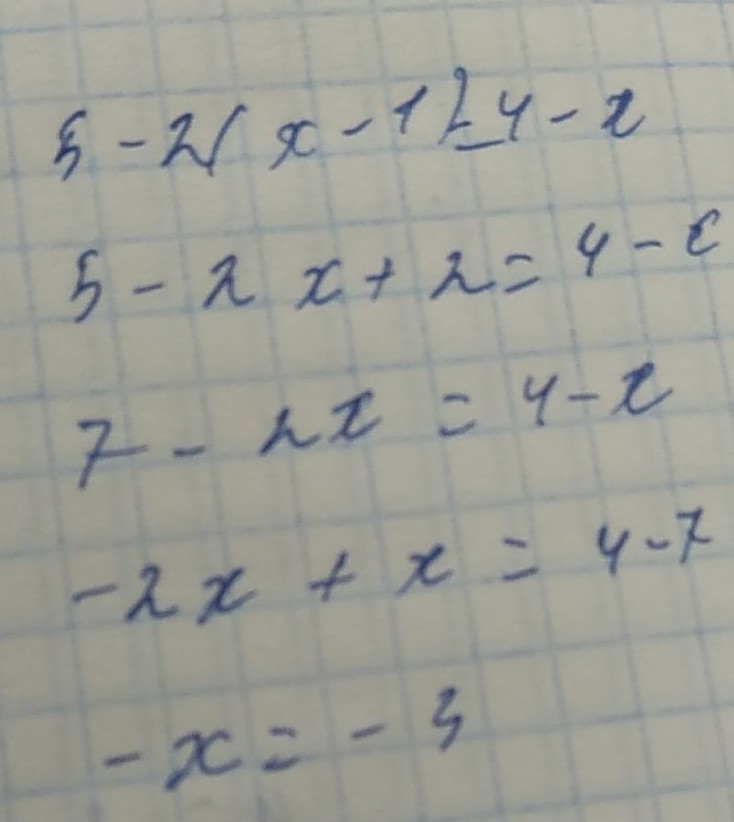 5 - 2(x - 1) = 4 - x
5 - 2x + 2 = 4 - x
7 - 2x = 4 - x
-2x + x = 4 - 7
-x = -3